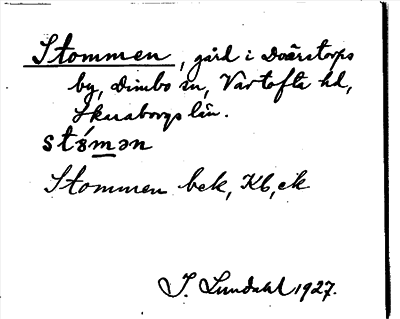 Stommen, gård i Dvärstorps
by, Dimbo sn, Vartofta hd,
Skaraborgs län.
stǿmən
Stommen bek, Kb, ek
I. Lundahl 1927.